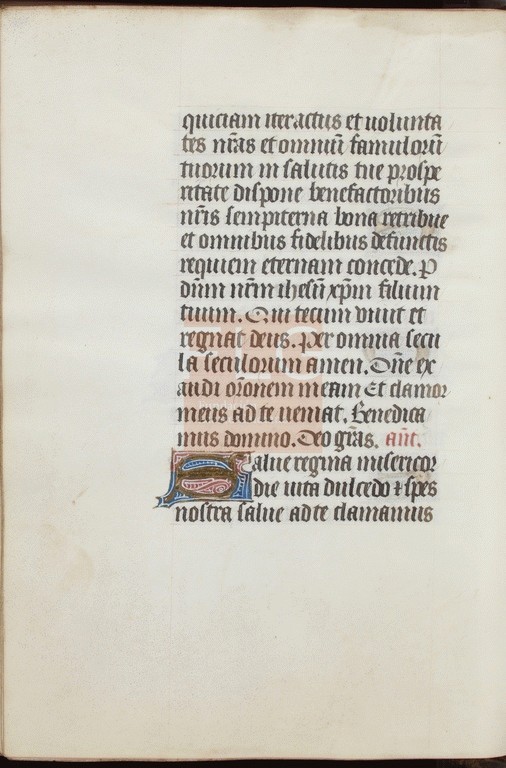 quiciam iter actus et uolunta
tes nr̄as et omniū famulorū
tuorum in salutis tue prospe
ritate dispone benefactoribus
nr̄is sempiterna bona retribue
et omnibus fidelibus defunctis
requiem eternam concede. P
dūm nr̄m ihesū xp̄m filium
tuum. Qui tecum uiuit et
regnat deus. Per omnia secu
la seculorum amen. Dn̄e ex
audi orōnem meam Et clamor
meus ad te ueniat. Benedica
mus domino. Deo gr̄as. an̄t.
Salue regina misericor
die uita dulcedo ⁊ spes
nostra salue ad te clamamus